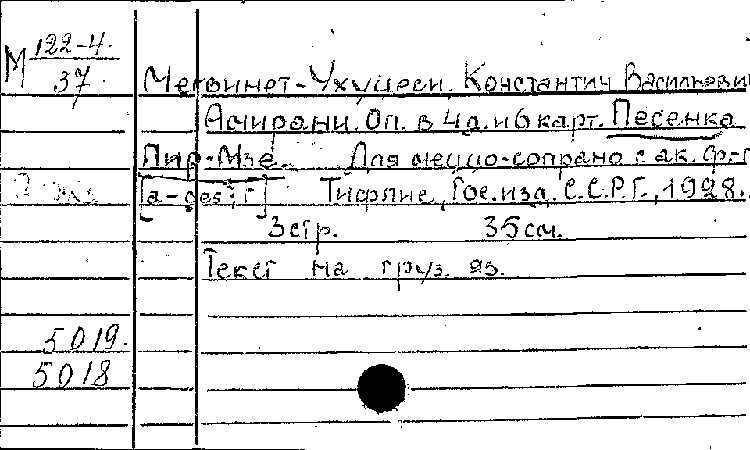 М 122-4.
37.
Мегвинет-Ухуцеси, Константин Василиеви
Асирани. Оп. в 4 д. и 6 карт. Песенка
Пир-Мзе. Для меццо-сопрано с ак. ф-п
[a-ges; г] Тифлис, Гос. изд. С.С.Р.Г., 1928.
3 стр. 35 см.
Текст на груз. яз.
5019.
5018